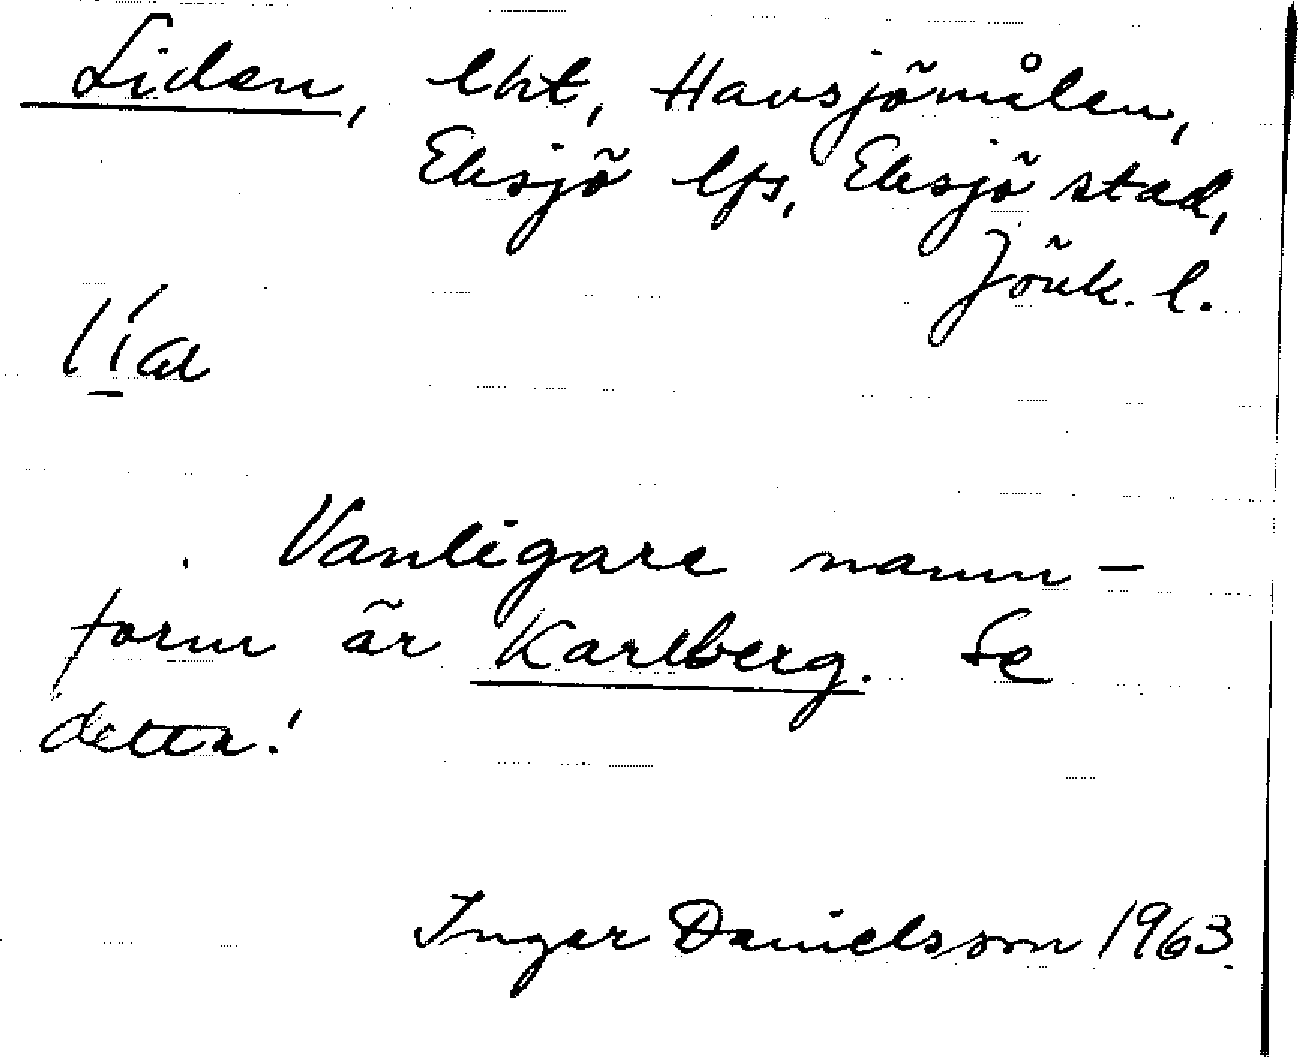 Liden, lht, Havsjömålen,
Eksjö lfs, Eksjö stad,
Jönk. l.
Vanligare namn-
form är Karlberg. Se
detta!
Inger Danielsson 1963.